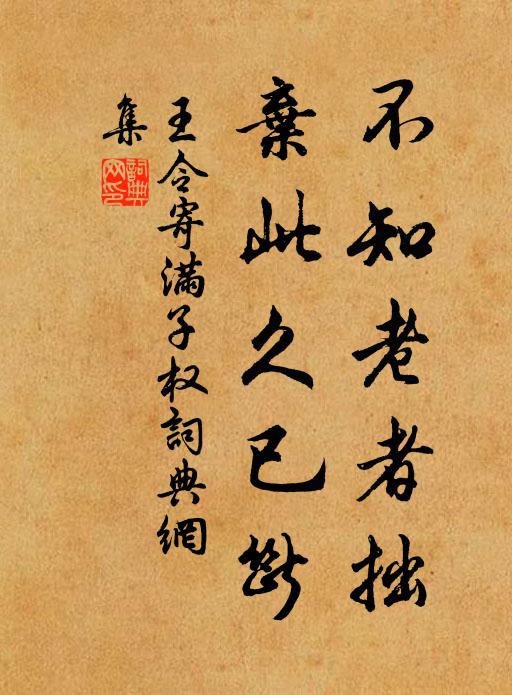 不知老者拙
棄此久已斷
王令寄滿子权詞典網
集
詞典
网印